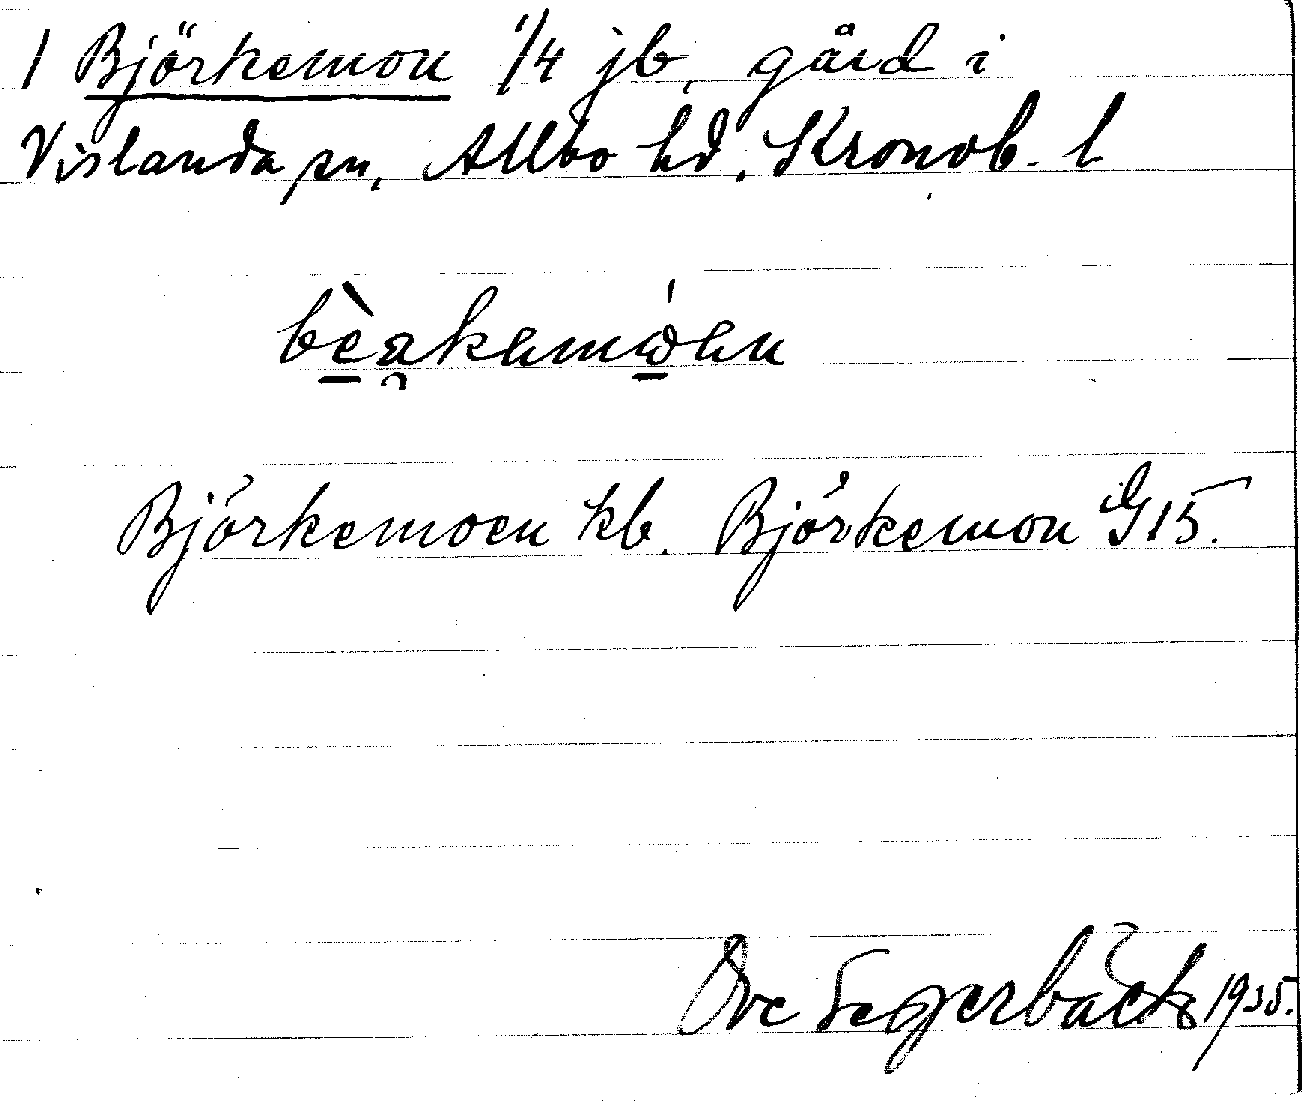 1 Björkemon 1/4 jb. gård i
Vislanda sn, Allbo hd. Kronob. l
Björkemoen kb. Björkemon G15.
Ove Segerbäck 1935.